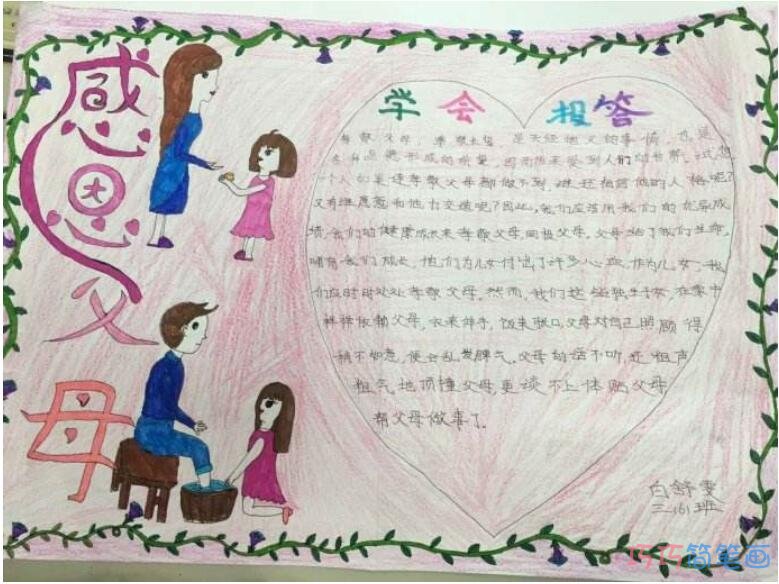 感恩父母
学会 报答
孝敬父母,孝敬长辈,是天经地义的事情,也是
美德形成的前提,因而历来受到人们的称赞。试想
一个人如果连孝敬父母都做不到,谁还相信他的人格呢?
又有谁愿意和他打交道呢?因此,我们应该用我们的优异成
绩,我们的健康成长来孝敬父母,回报父母。父母给了我们生命,
哺育我们成长,他们为儿女付出了许多心血,作为儿女,我
们应时时处处孝敬父母。然而,我们这些独生子女,在家中
样样依赖父母,衣来伸手,饭来张口,父母对自己照顾得
稍不如意,便会乱发脾气。父母的话不听,还粗声
粗气地顶撞父母,更谈不上体贴父母
帮父母做事了。
白舒雯
三(6)班
巧巧简笔画